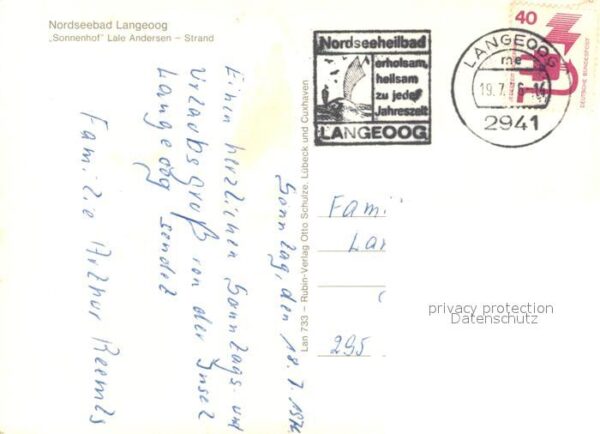 Nordseebad Langeoog
„Sonnenhof" Lale Andersen – Strand
Sonntag, den 18.7.1976
Einen herzlichen Sonntags- und
Urlaubsgruß von der Insel
Langeoog sendet
Familie Arthur Reemts
Lan 733 – Rubin-Verlag Otto Schulze, Lübeck und Cuxhaven
Nordseeheilbad
erholsam,
heilsam
zu jeder
Jahreszeit
LANGEOOG
LANGEOOG
me
19.7.76-14
2941
40
DEUTSCHE BUNDESPOST
Fami
Lar
295
privacy protection
Datenschutz